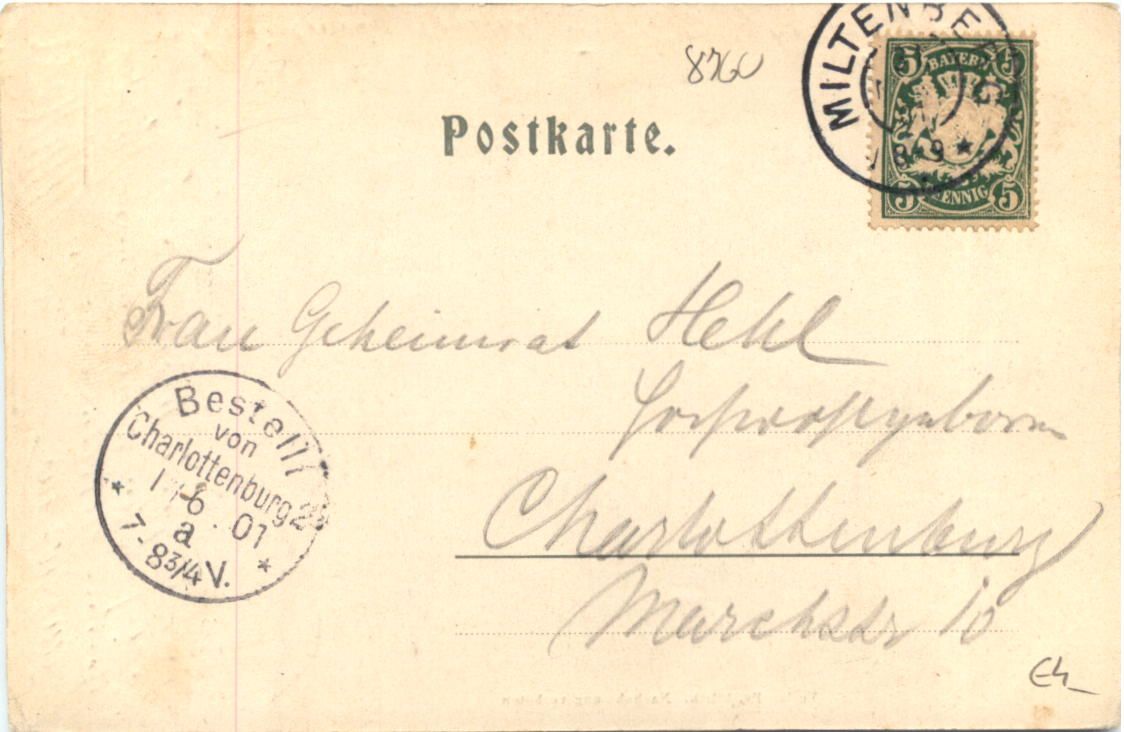 8760
Postkarte.
MILTENBERG
8-9
5 BAYERN 5
5 PFENNIG 5
Frau Geheimrat Hehl
Charlottenburg
Marchstr 10
Bestellt
von
Charlottenburg 2
6.01
a
7-8 3/4 V.